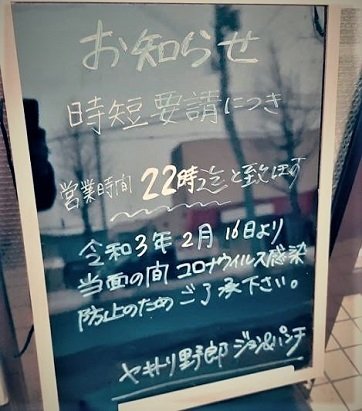 お知らせ
時短要請につき
営業時間 22時迄と致します
令和3年2月16日より
当面の間 コロナウイルス感染
防止のため ご了承下さい。
ヤキトリ野郎 ジョン&パンチ